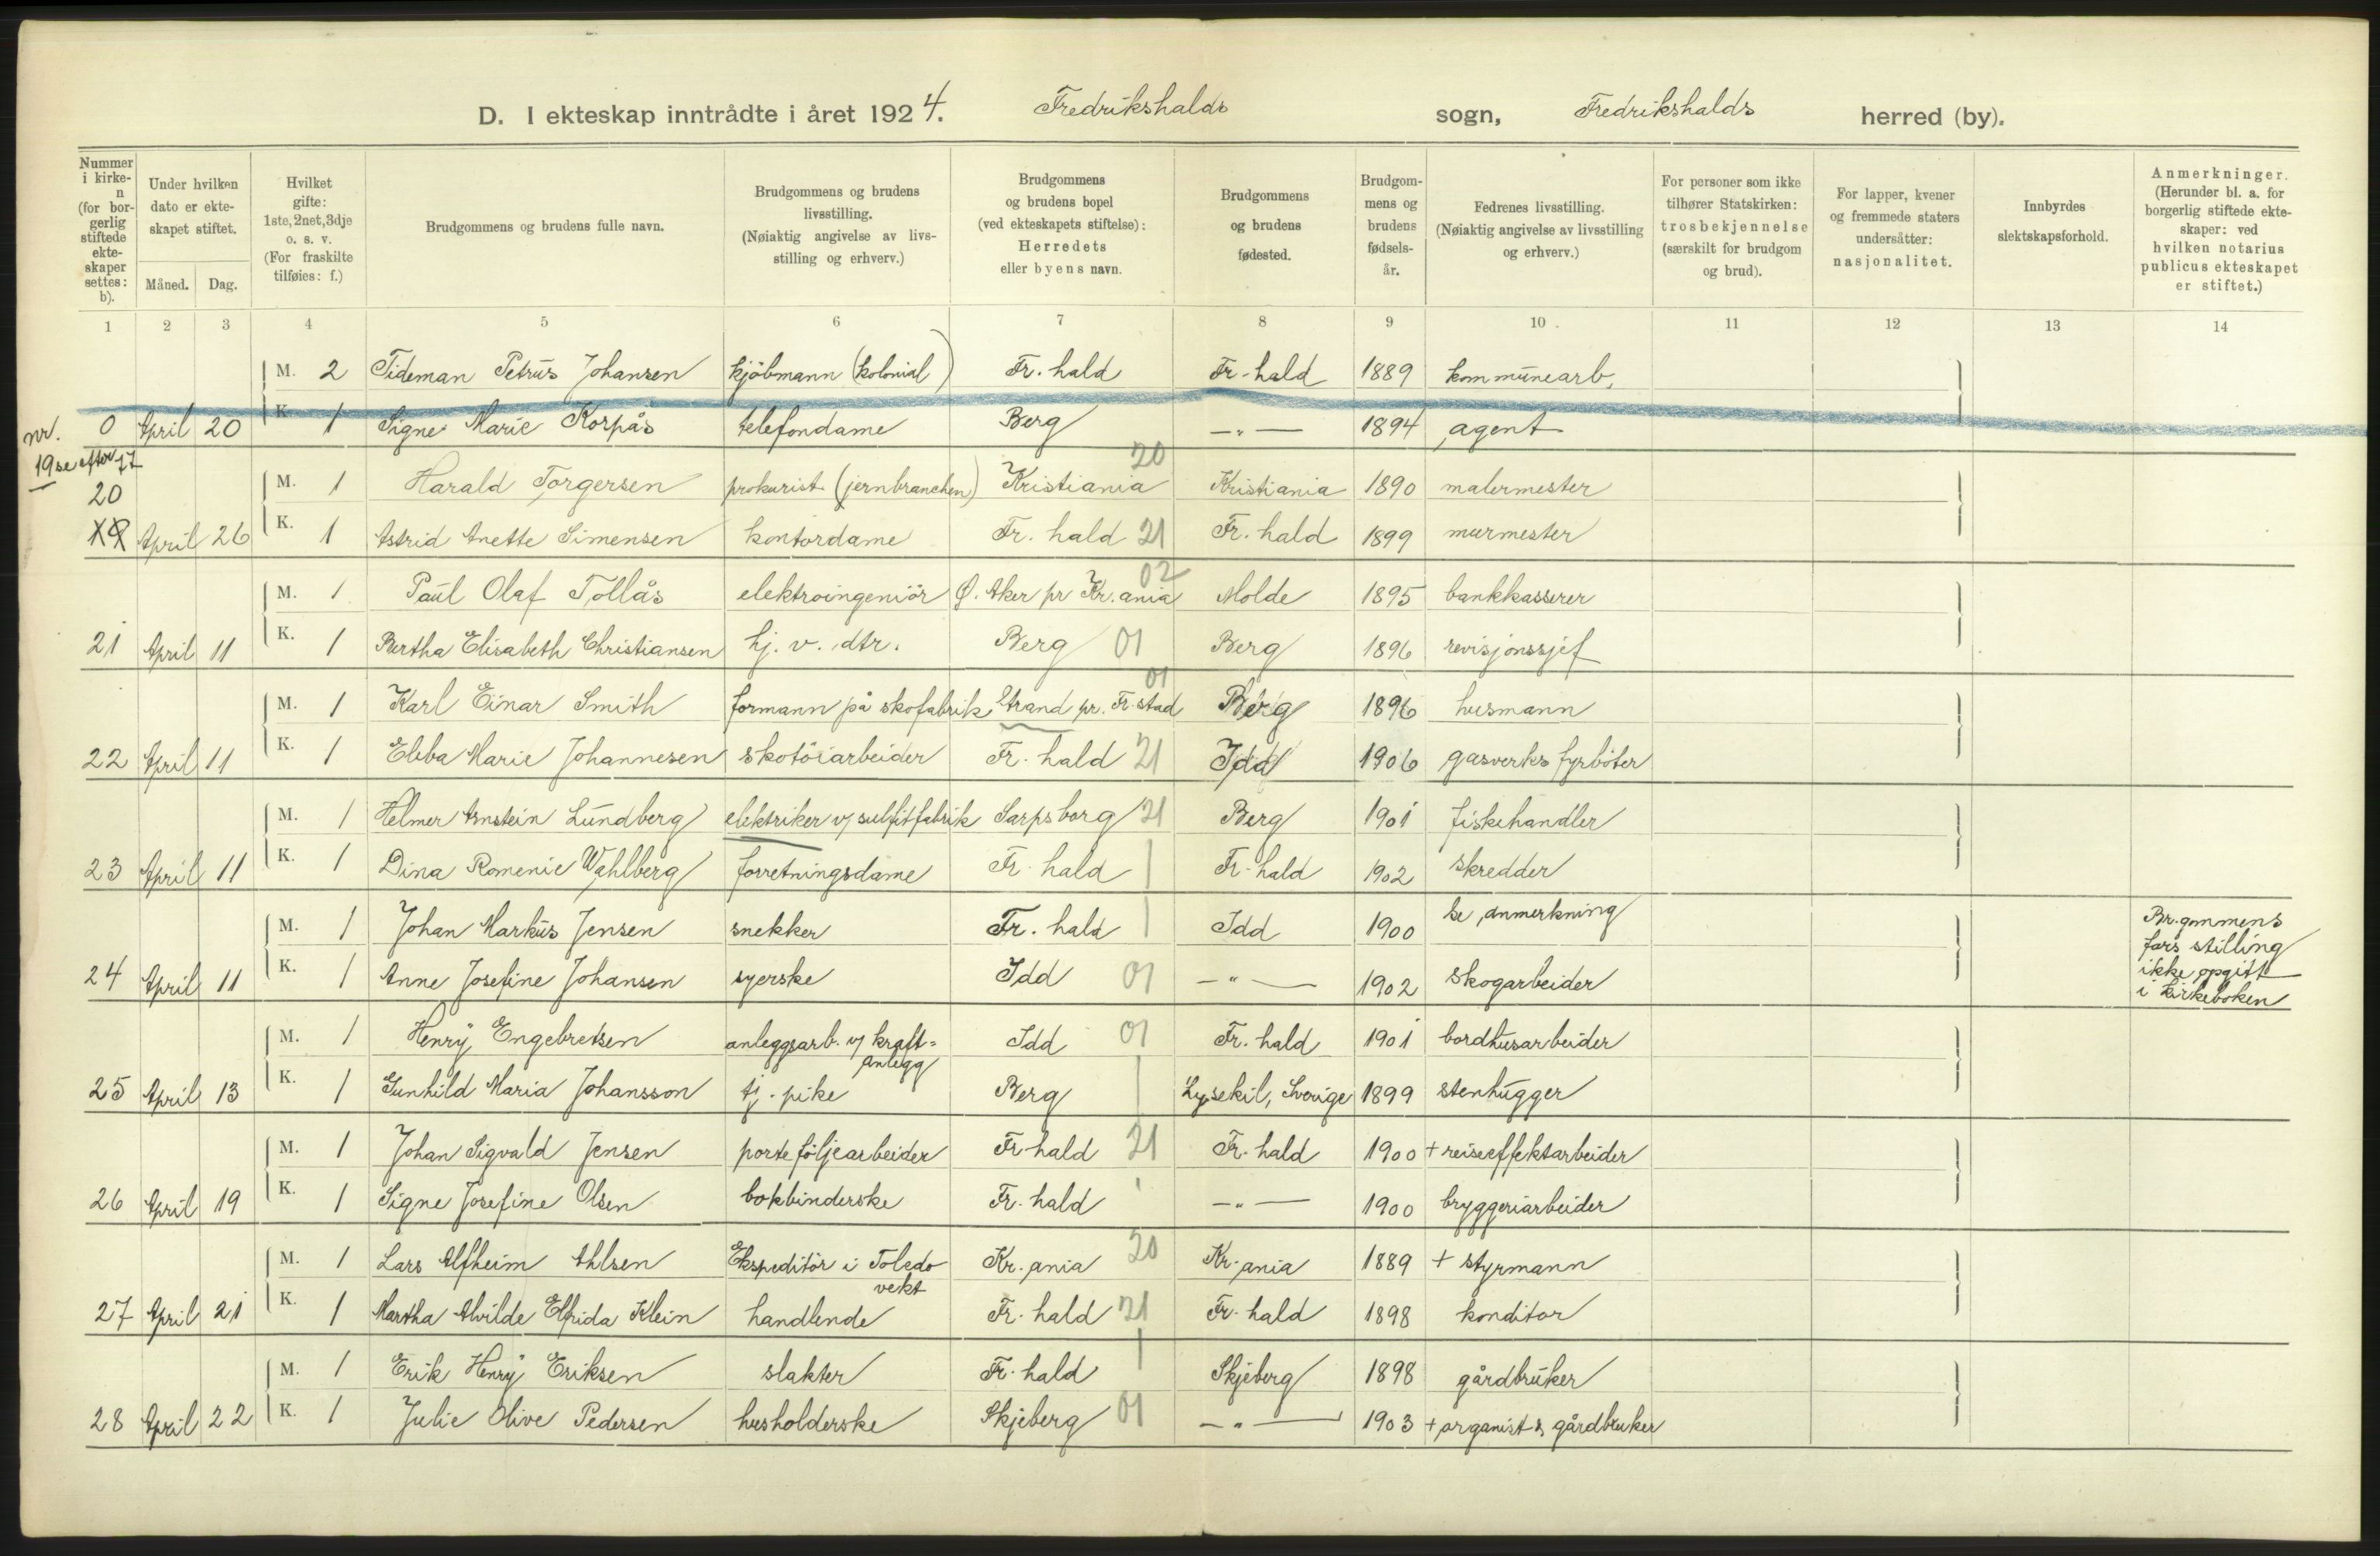 D. I ekteskap inntrådte i året 1924. Fredrikshalds sogn, Fredrikshalds herred (by).
Nummer i kirke-n (for bor-gerlig stiftede ekte-skaper settes: b).
Under hvilken dato er ekte-skapet stiftet.
Måned. Dag.
Hvilket gifte: 1ste, 2net, 3dje o. s. v. (For fraskilte tilføies: f.)
Brudgommens og brudens fulle navn.
Brudgommens og brudens livsstilling. (Nøiaktig angivelse av livs-stilling og erhverv.)
Brudgommens og brudens bopel (ved ekteskapets stiftelse): Herredets eller byens navn.
Brudgommens og brudens fødested.
Brudgom-mens og brudens fødsels-år.
Fedrenes livsstilling. (Nøiaktig angivelse av livsstilling og erhverv.)
For personer som ikke tilhører Statskirken: trosbekjennelse (særskilt for brudgom og brud).
For lapper, kvener og fremmede staters undersåtter: nasjonalitet.
Innbyrdes slektskapsforhold.
Anmerkninger. (Herunder bl. a. for borgerlig stiftede ekte-skaper: ved hvilken notarius publicus ekteskapet er stiftet.)
1 2 3 4 5 6 7 8 9 10 11 12 13 14
M. 2 Tideman Petrus Johansen kjöbmann (kolonial) Fr. hald Fr. hald 1889 kommunearb.
0 April 20 K. 1 Signe Marie Korpås telefondame Berg —„— 1894 agent
nr. 19 se efter 77
M. 1 Harald Torgersen prokurist (jernbranchen) Kristiania 20 Kristiania 1890 malermester
20
19 April 26 K. 1 Astrid Anette Simensen kontordame Fr. hald 21 Fr. hald 1899 murmester
M. 1 Paul Olaf Tollås elektroingeniör Ø. Aker pr Kr.ania 02 Molde 1895 bankkasserer
21 April 11 K. 1 Bertha Elisabeth Christiansen hj. v. dtr. Berg 01 Berg 1896 revisjonssjef
M. 1 Karl Einar Smith formann på skofabrik Strand pr. Fr.stad 01 Berg 1896 husmann
22 April 11 K. 1 Ebba Marie Johannesen skotöiarbeider Fr. hald 21 Idd 1906 gasverks fyrböter
M. 1 Helmer Arnstein Lundberg elektriker v/ sulfitfabrik Sarpsborg 21 Berg 1901 fiskehandler
23 April 11 K. 1 Dina Romenie Wahlberg forretningsdame Fr. hald | Fr. hald 1902 skredder
M. 1 Johan Markus Jensen snekker Fr. hald | Idd 1900 se anmerkning Br.gommens fars stilling ikke opgitt i kirkeboken
24 April 11 K. 1 Anne Josefine Johansen syerske Idd 01 —„— 1902 skogarbeider
M. 1 Henry Engebretsen anleggsarb. v/ kraft=anlegg Idd 01 Fr. hald 1901 bordhusarbeider
25 April 13 K. 1 Gunhild Maria Johansson tj. pike Berg | Lysekil, Sverige 1899 stenhugger
M. 1 Johan Sigvald Jensen porteföljearbeider Fr. hald 21 Fr. hald 1900 + reiseeffektarbeider
26 April 19 K. 1 Signe Josefine Olsen bokbinderske Fr. hald ' —„— 1900 bryggeriarbeider
M. 1 Lars Alfheim Ahlsen Ekspeditör i Toledo vekt Kr. ania 20 Kr. ania 1889 + styrmann
27 April 21 K. 1 Martha Alvilde Elfrida Klein handlende Fr. hald 21 Fr. hald 1898 konditor
M. 1 Erik Henry Eriksen slakter Fr. hald | Skjeberg 1898 gårdbruker
28 April 22 K. 1 Julie Olive Pedersen husholderske Skjeberg 01 —„— 1903 + organist & gårdbruker